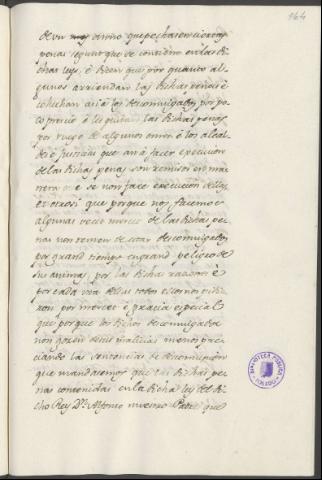 164
de un año que pechasen ciertas
penas segunt que se contiene en las di-
chas leys, è dicen que por quanto al-
gunos arriendan las dichas penas è
cohechan asi à los descomulgados por po-
co precio è les quitan las dichas penas
por ruego de algunos omes è los alcal-
des è Justicias que an à facer execucion
de las dichas penas son remisos en ma-
nera que se non face execucion dellas,
et otrosi que porque nos facemos
algunas veces merced de las dichas pe-
nas non temen de estar descomulgados
por grand tiempo en grand peligro de
sus animas, por las dichas razones è
por cada una dellas todos estos nos pidie-
ron por merced è gracia especial
que porque los dichos descomulgados
non gocen de su malicia menospre-
ciando las sentencias de descomunion
que mandasemos que las dichas pe-
nas contenidas en la dicha ley del di-
cho Rey Dn. Alfonso nuestro Padre que
BIBLIOTECA PUBLICA
TOLEDO